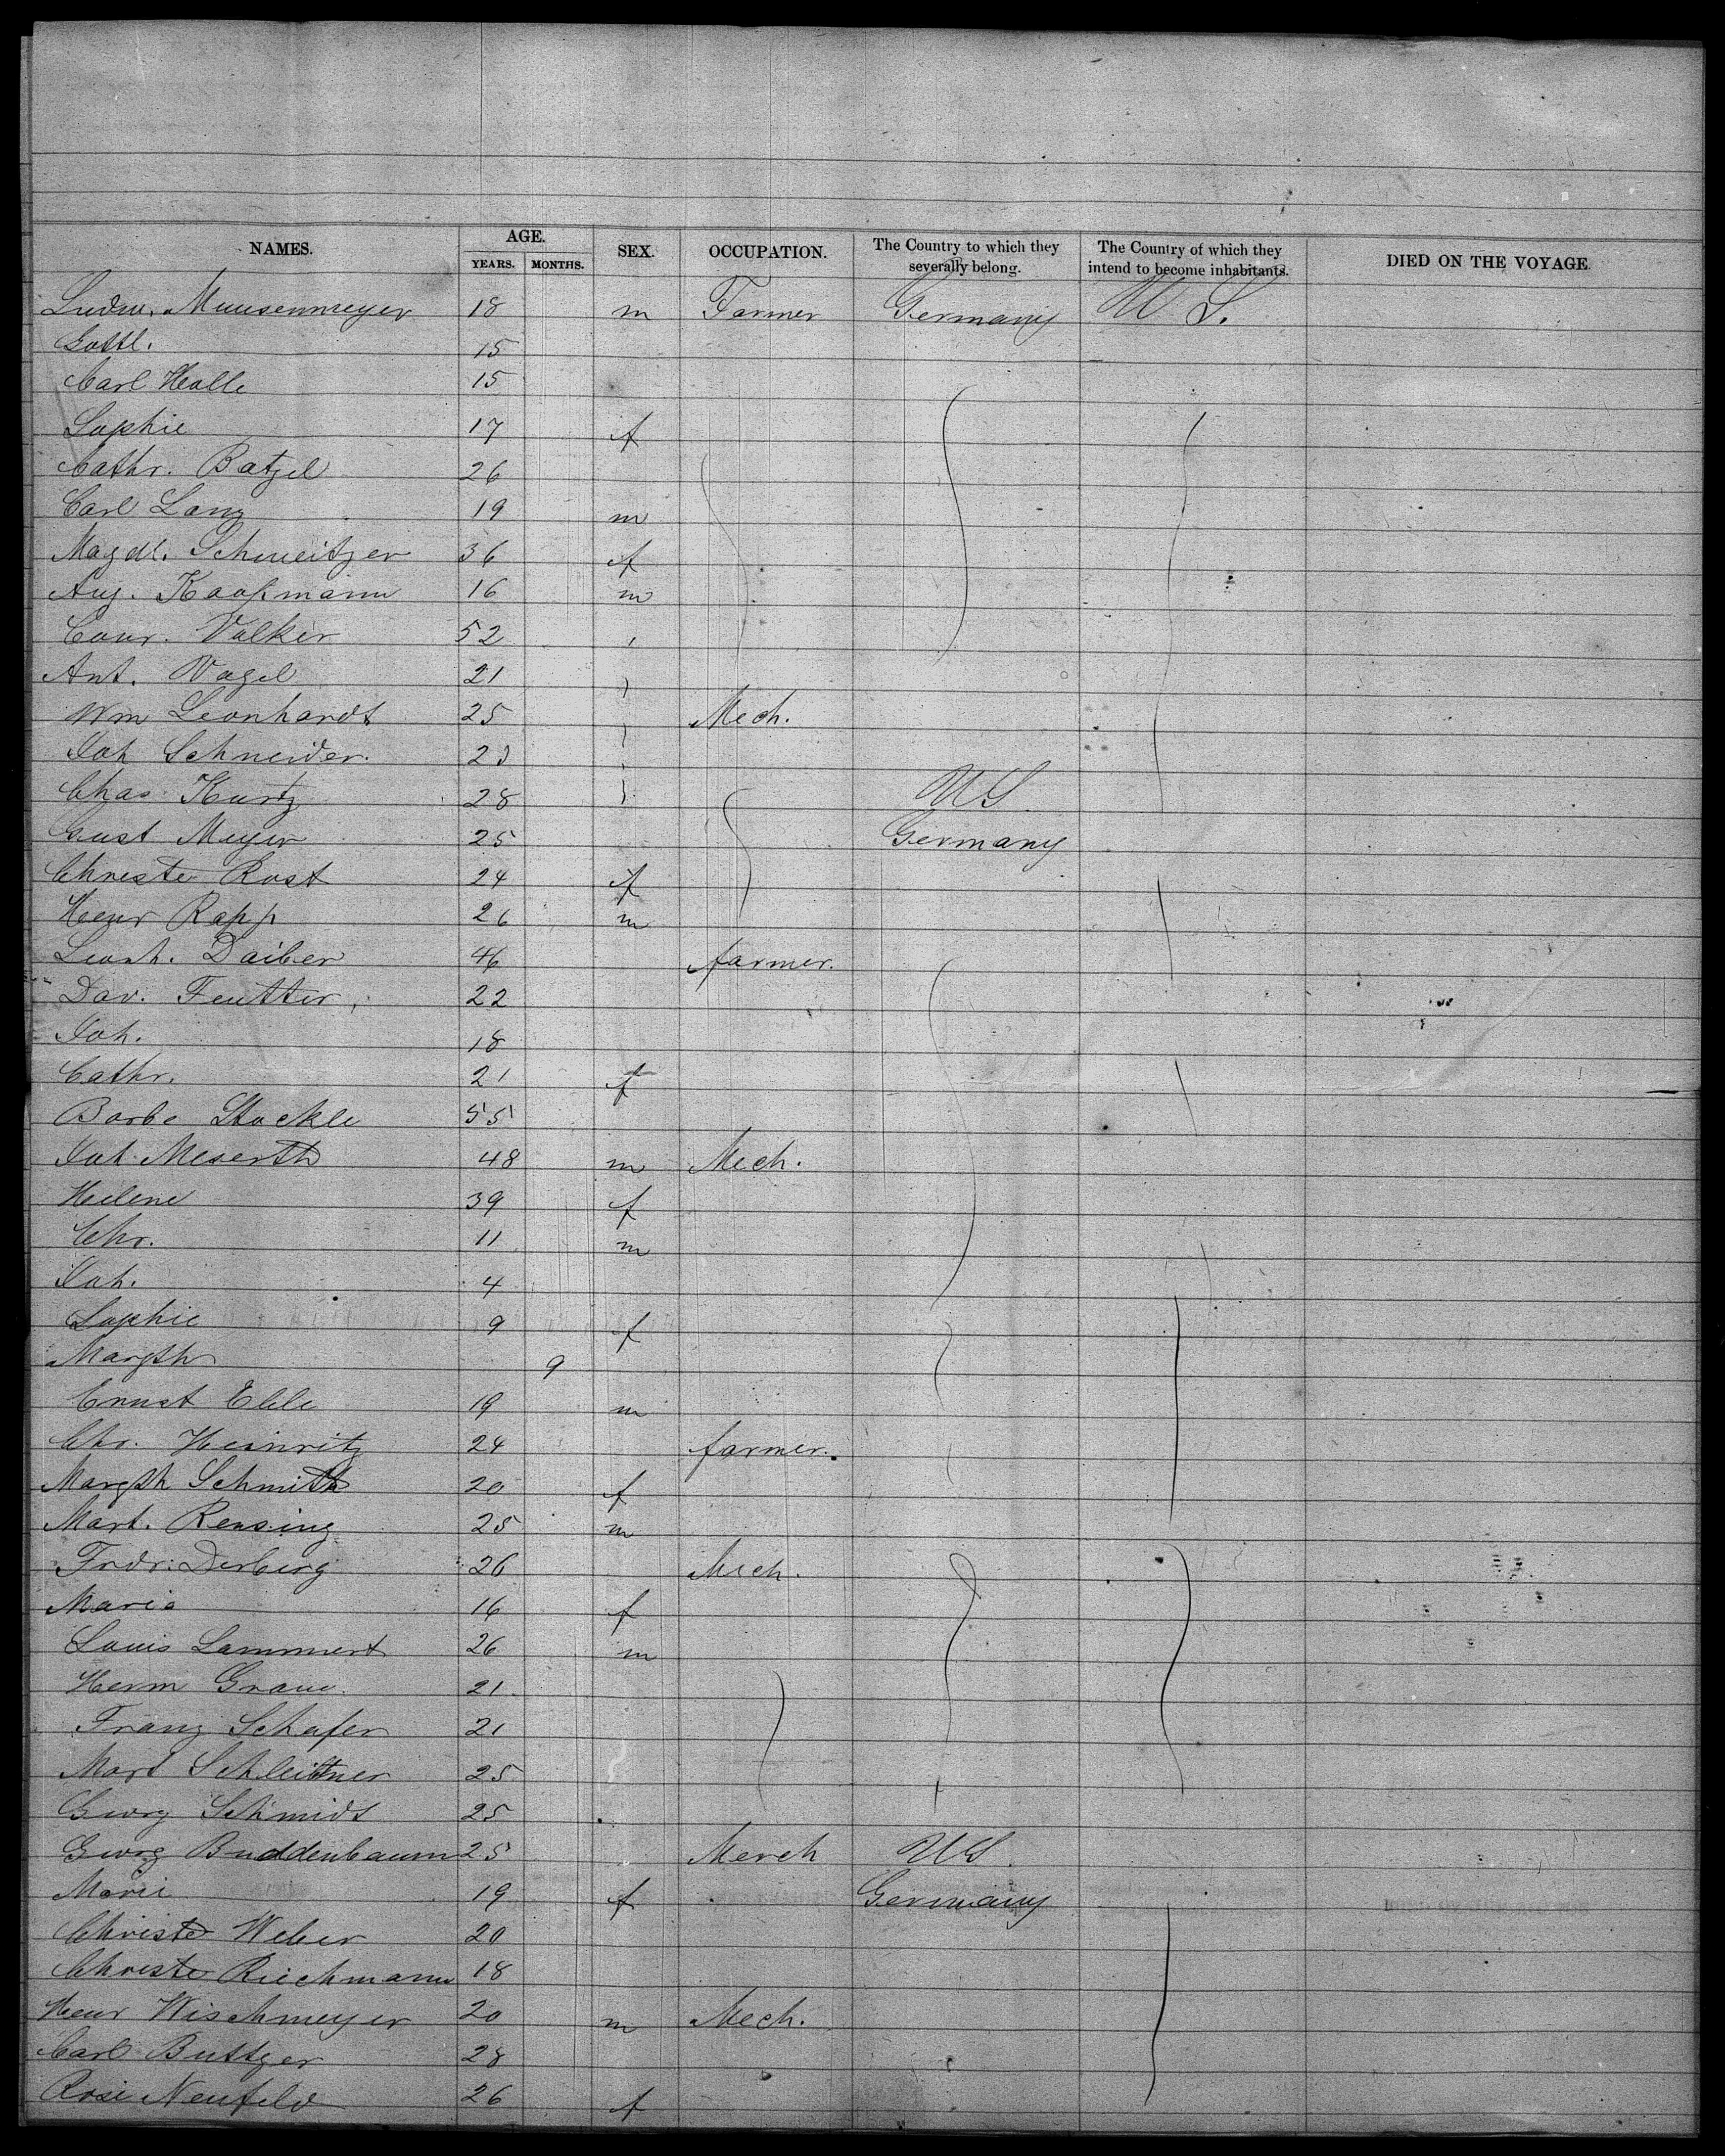 NAMES. AGE. SEX. OCCUPATION. The Country to which they severally belong. The Country of which they intend to become inhabitants. DIED ON THE VOYAGE
YEARS. MONTHS.
Ludw. Muusenmeyer 18 m Farmer Germany U S.
Gottl. 15
Carl Halle 15
Sophie 17 f
Cathr. Batzel 26
Carl Lang 19 m
Magdl. Schweitzer 36 f
Aug. Koopmann 16 m
Conr. Volker 52
Ant. Vogel 21
Wm Leonhardt 25 Mech.
Joh Schneider. 23
Chas Kurtz 28 US
Gust Meyer 25 Germany
Christe Rost 24 f
Henr Rapp 26 m
Leonh. Daiber 46 farmer.
Dav. Feutter 22
Joh. 18
Cathr. 21 f
Barbe Stockle 55
Joh Meserth 48 m Mech.
Helene 39 f
Chr. 11 m
Joh. 4
Sophie 9 f
Margth 9
Ernst Eble 19 m
Chr. Heinritz 24 farmer.
Margth Schmith 20 f
Mart. Rensing 25 m
Frdr. Derberg 26 Mech.
Maria 16 f
Louis Lammert 26 m
Herm Grauv. 21
Franz Schafer 21
Mart Schleittner 25
Georg Schmidt 25
Georg Buddenbaum 25 Merch US.
Marie 19 f Germany
Christe Weber 20
Christe Riechmann 18
Henr Wischmeyer 20 m Mech.
Carl Buttger 28
Rosi Neufeld 26 f